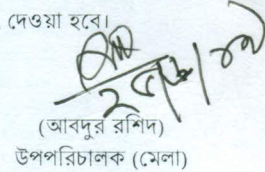 দেওয়া হবে।
(আবদুর রশিদ)
উপপরিচালক (মেলা)